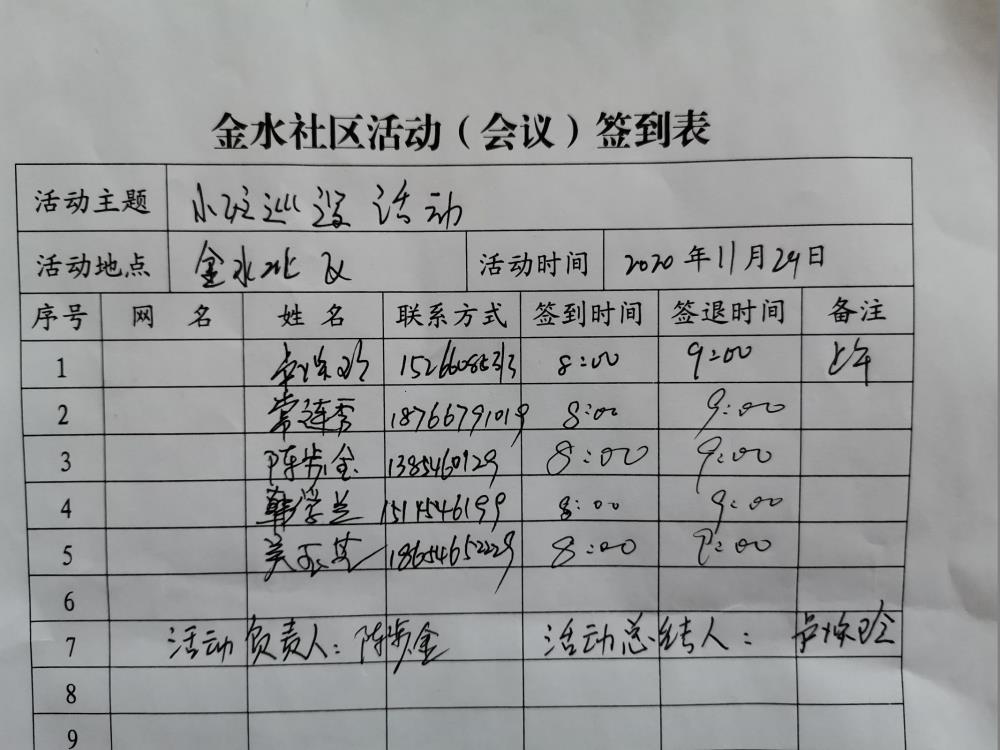 金水社区活动（会议）签到表
活动主题 小区巡逻活动
活动地点 金水北区 活动时间 2020年11月29日
序号 网 名 姓 名 联系方式 签到时间 签退时间 备注
1 8:00 9:00 上午
2 常连秀 18766791019 8:00 9:00
3 陈步金 1385460129 8:00 9:00
4 韩学兰 8:00 9:00
5 18654652229 8:00 9:00
6
7 活动负责人：陈步金 活动总结人：
8
9